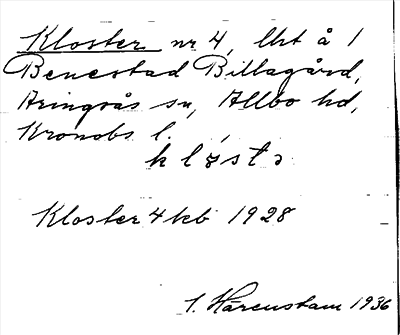 Kloster nr 4, lht å 1
Benestad Billagård,
Aringsås sn, Allbo hd,
Kronobs l.
kløstɔ
Kloster 4 kb 1928
I. Härenstam 1936